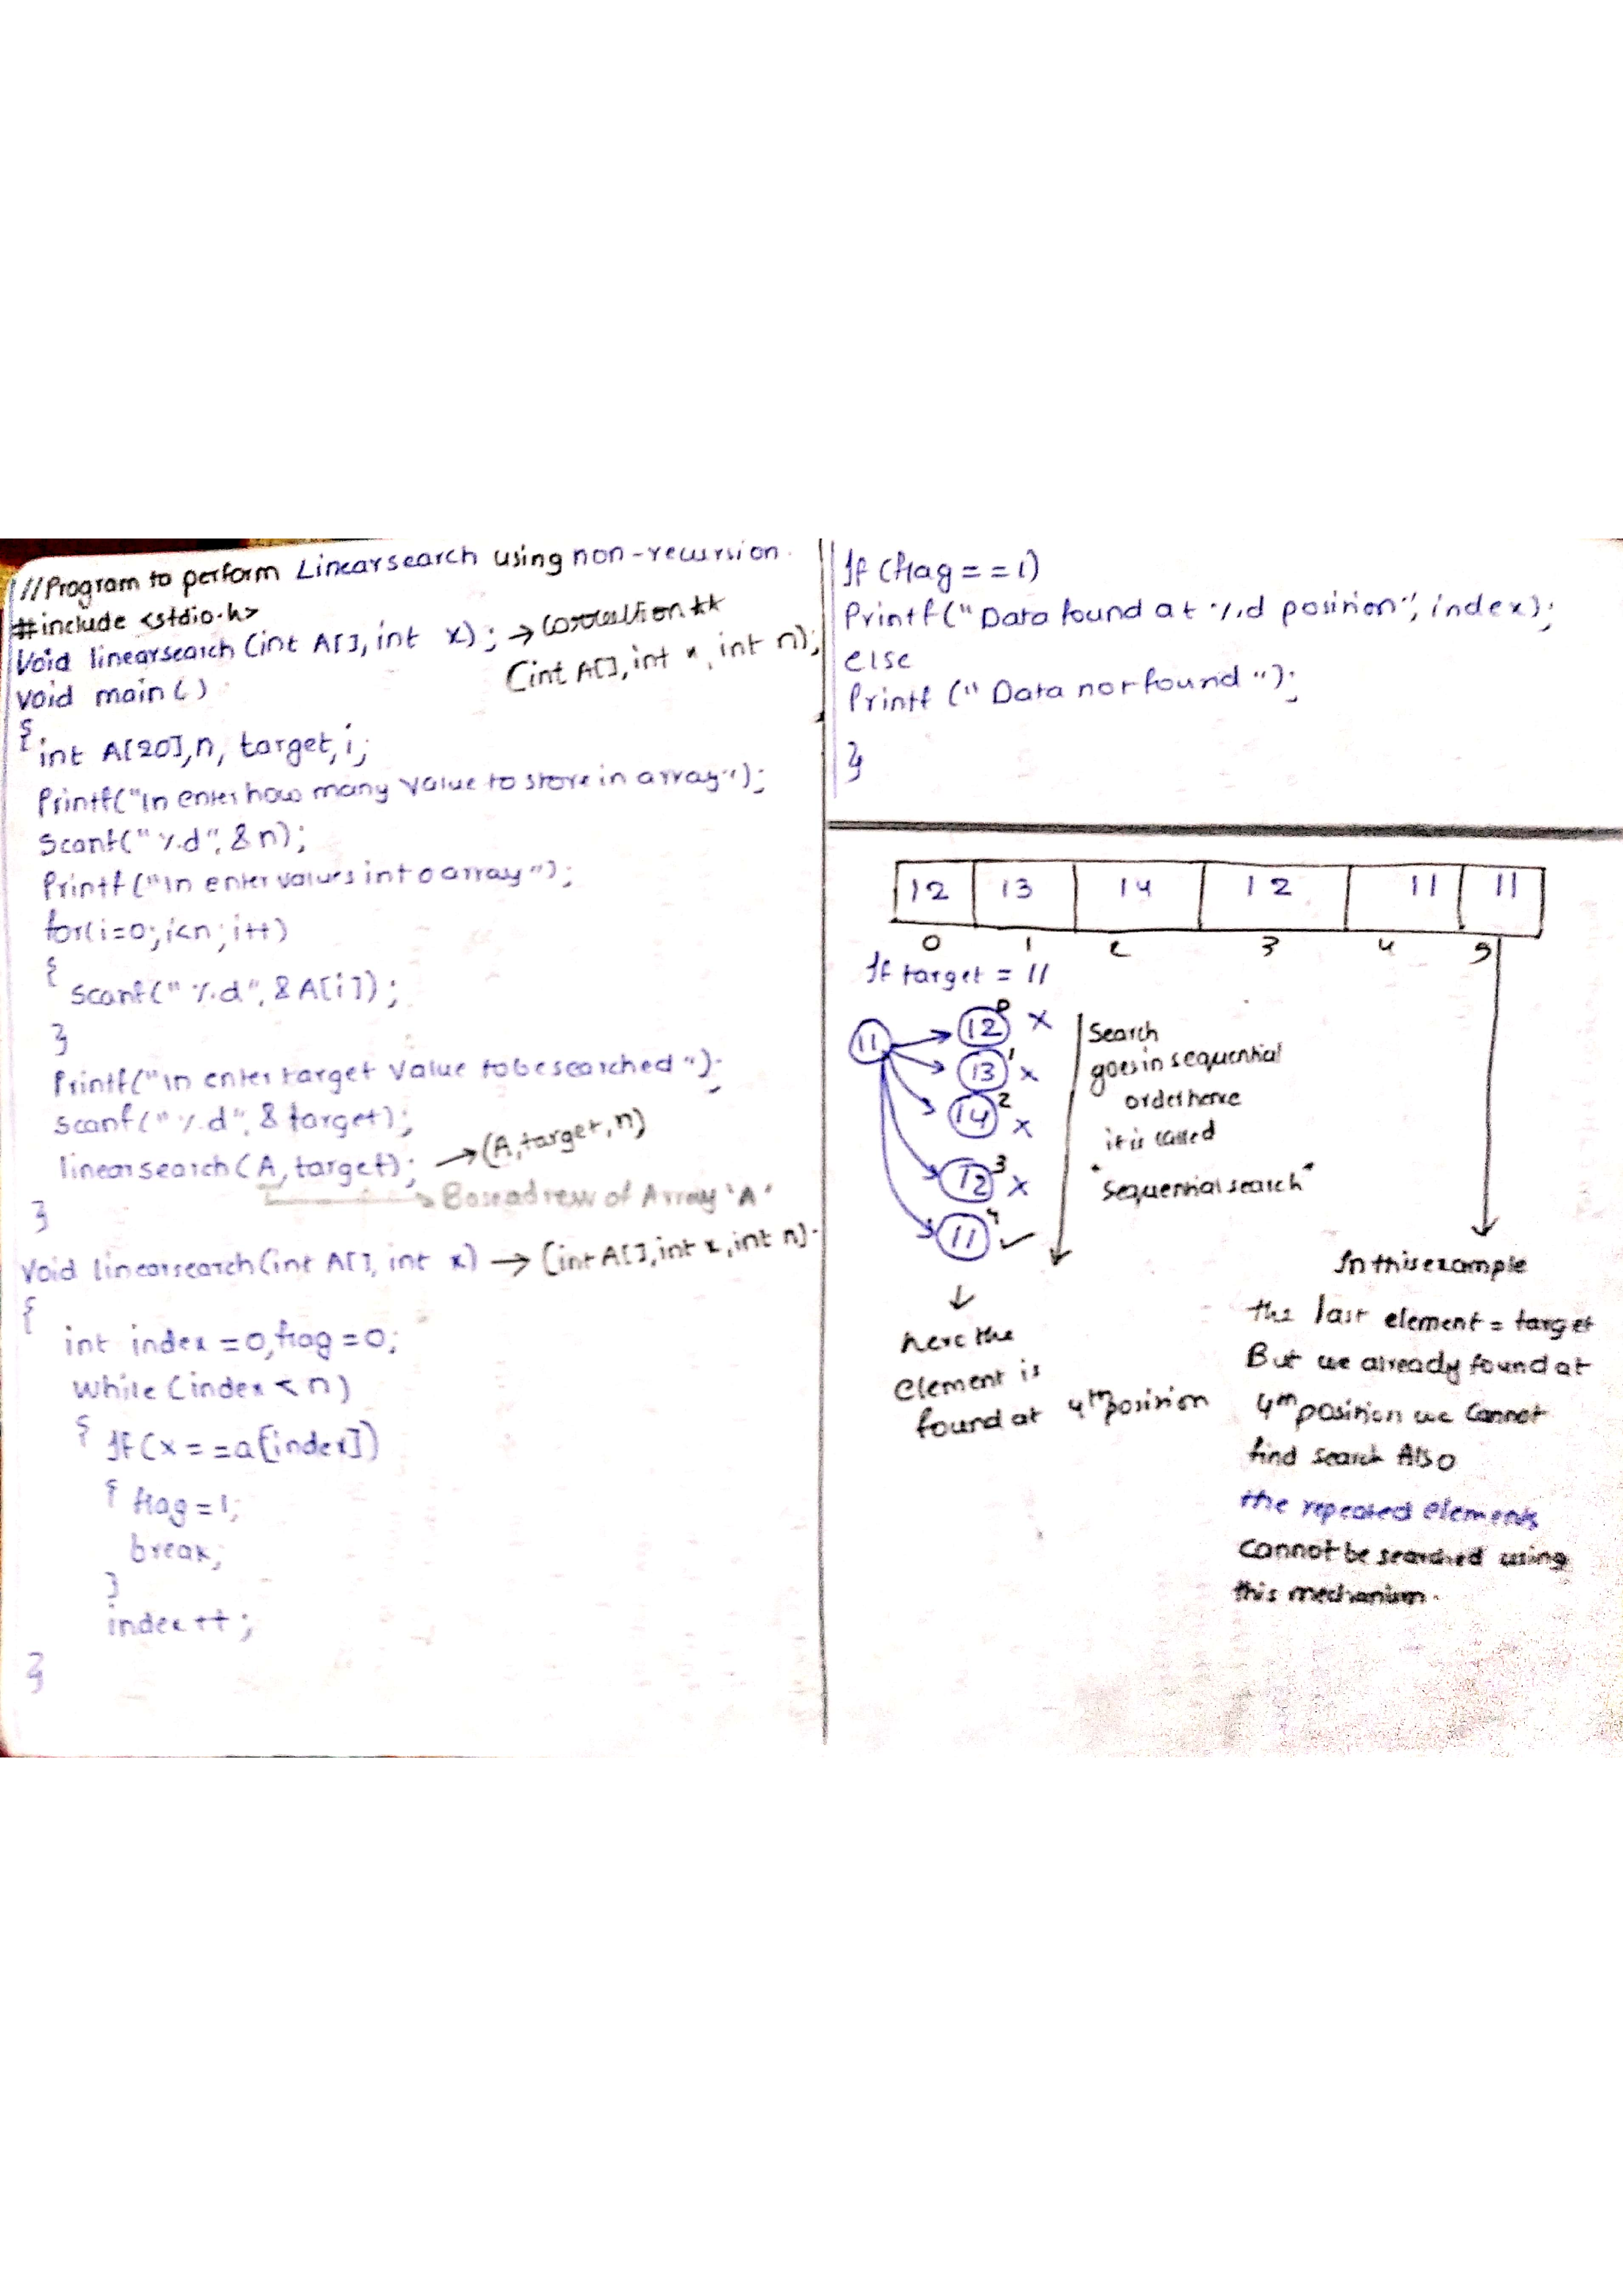 //Program to perform Linearsearch using non-recursion.
#include <stdio.h>
Void linearsearch (int A[], int x); → correction **
(int A[], int x, int n);
void main()
{
int A[20], n, target, i;
Printf("\n enter how many value to store in array");
Scanf("%d", &n);
Printf("\n enter values into array");
for(i=0; i<n; i++)
{
Scanf("%d", &A[i]);
}
Printf("\n enter target value to be searched");
Scanf("%d", &target);
linearsearch(A, target); → (A, target, n)
→ Baseadress of Array 'A'
}
Void linearsearch(int A[], int x) → (int A[], int x, int n).
{
int index = 0, flag = 0;
While (index < n)
{ If (x == a[index])
{ flag = 1;
break;
}
index ++;
}
If (flag == 1)
Printf("Data found at %d position", index);
else
Printf ("Data not found");
}
12 13 14 12 11 11
0 1 2 3 4 5
If target = 11
11
12 0 x
13 1 x
14 2 x
12 3 x
11 4 ✓
Search
goes in sequential
order hence
it is called
"Sequential search"
↓
here the
element is
found at 4th position
In this example
the last element = target
But we already found at
4th position we cannot
find search Also
the repeated elements
cannot be searched using
this mechanism.